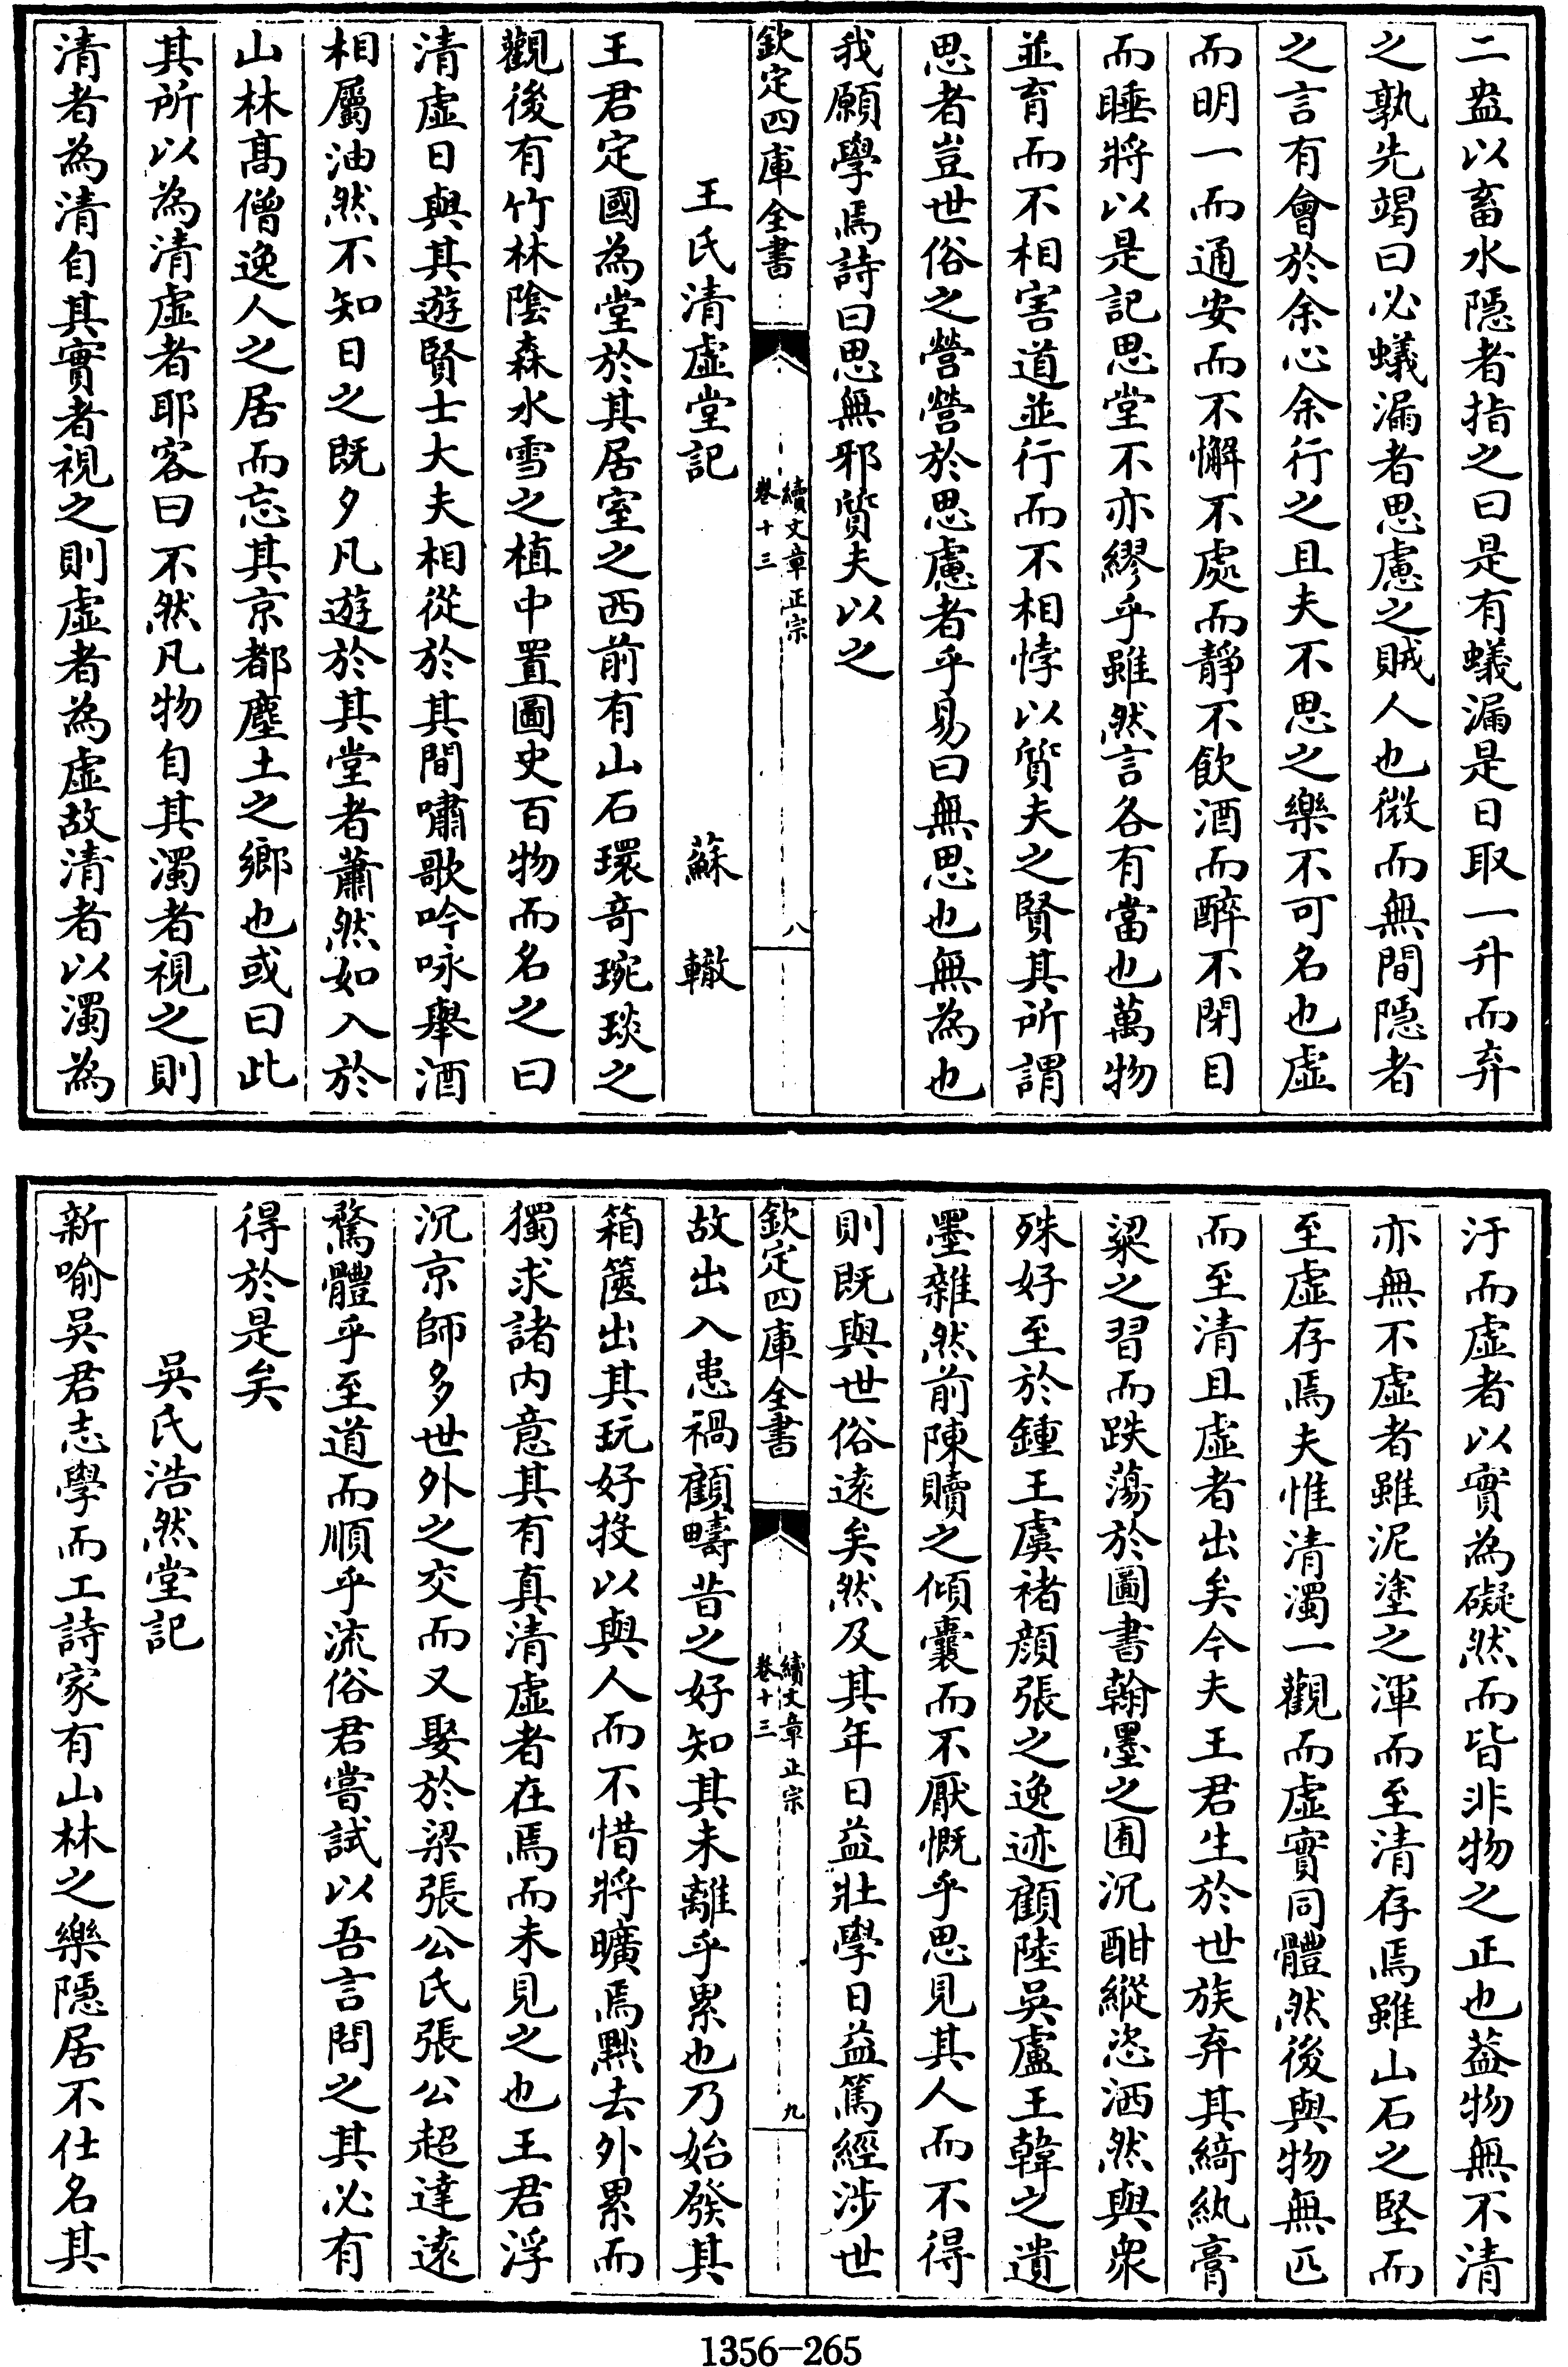 二盎以畜水隱者指之曰是有蟻漏是日取一升而弃
之孰先竭曰必蟻漏者思慮之賊人也微而無間隱者
之言有會於余心余行之且夫不思之樂不可名也虛
而明一而通安而不懈不處而靜不飲酒而醉不閉目
而睡將以是記思堂不亦繆乎雖然言各有當也萬物
並育而不相害道並行而不相悖以質夫之賢其所謂
思者豈世俗之營營於思慮者乎易曰無思也無為也
我願學焉詩曰思無邪質夫以之
欽定四庫全書
續文章正宗
卷十三
八
王氏清虛堂記
蘇轍
王君定國為堂於其居室之西前有山石環奇琬琰之
觀後有竹林陰森水雪之植中置圖史百物而名之曰
清虛日與其遊賢士大夫相從於其間嘯歌吟咏舉酒
相屬油然不知日之既夕凡遊於其堂者蕭然如入於
山林髙僧逸人之居而忘其京都塵土之鄉也或曰此
其所以為清虛者耶客曰不然凡物自其濁者視之則
清者為清自其實者視之則虛者為虛故清者以濁為
汙而虛者以實為礙然而皆非物之正也葢物無不清
亦無不虛者雖泥塗之渾而至清存焉雖山石之堅而
至虛存焉夫惟清濁一觀而虛實同體然後與物無匹
而至清且虛者出矣今夫王君生於世族弃其綺紈膏
粱之習而跌蕩於圖書翰墨之囿沉酣縱恣洒然與衆
殊好至於鍾王虞褚顔張之逸迹顧陸吳盧王韓之遺
墨雜然前陳贖之傾囊而不厭慨乎思見其人而不得
則既與世俗遠矣然及其年日益壯學日益篤經涉世
欽定四庫全書
續文章正宗
卷十三
九
故出入患禍顧疇昔之好知其未離乎累也乃始發其
箱篋出其玩好投以與人而不惜將曠焉黙去外累而
獨求諸内意其有真清虛者在焉而未見之也王君浮
沉京師多世外之交而又娶於梁張公氏張公超達遠
騖體乎至道而順乎流俗君嘗試以吾言問之其必有
得於是矣
吳氏浩然堂記
新喻吳君志學而工詩家有山林之樂隱居不仕名其
1356-265